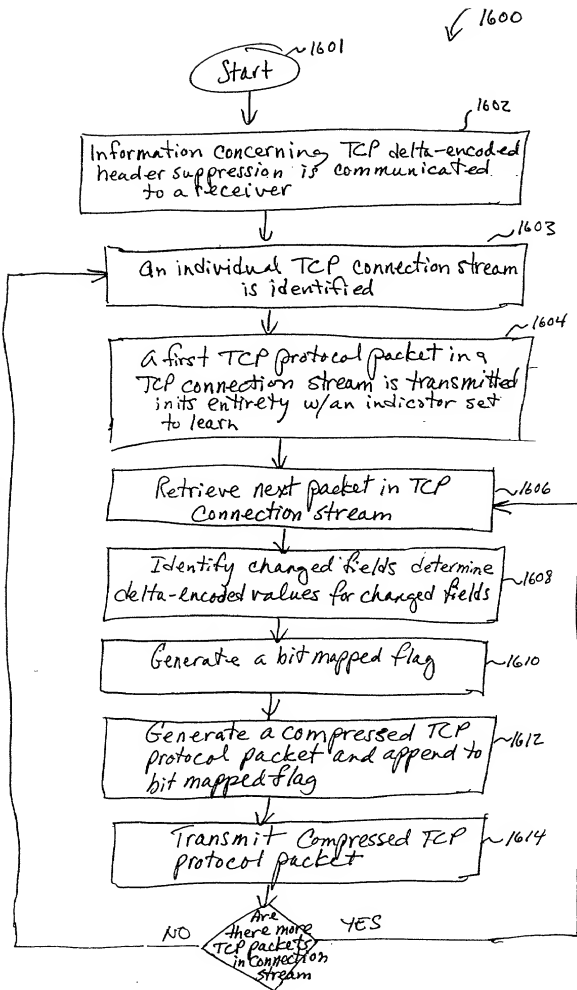 1600
1601
Start
1602
Information concerning TCP delta-encoded
header suppression is communicated
to a receiver
1603
An individual TCP connection stream
is identified
1604
A first TCP protocol packet in a
TCP connection stream is transmitted
in its entirety w/an indicator set
to learn
Retrieve next packet in TCP
Connection stream
1606
Identify changed fields determine
delta-encoded values for changed fields
1608
Generate a bit mapped flag
1610
Generate a compressed TCP
protocol packet and append to
bit mapped flag
1612
Transmit Compressed TCP
protocol packet
1614
Are
there more
TCP packets
in connection
stream
NO
YES